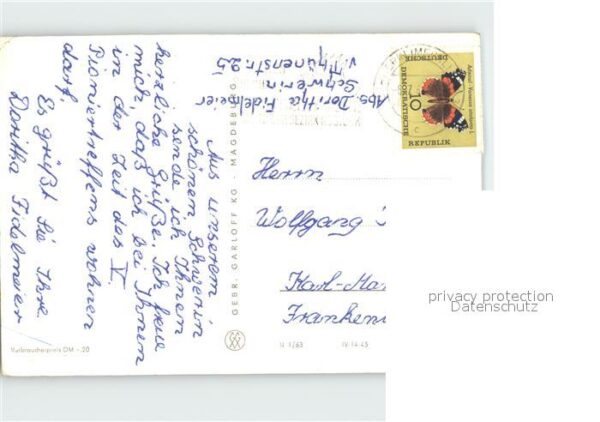 Abs. Dortha Fidelmeier
Schwerin
v. Thünenstr. 25
Aus unserem
schönen Schwerin
sende ich Ihnen
herzliche Grüße. Ich freue
mich, daß ich bei Ihnen
in der Zeit des V.
Pioniertreffens wohnen
darf.
Es grüßt Sie Ihre
Doritha Fidelmeier
Verbraucherpreis DM -.20
GEBR. GARLOFF KG · MAGDEBURG
DEUTSCHE
DEMOKRATISCHE
REPUBLIK
10
Admiral
Herrn
Wolfgang
Karl-Ma
Franken
N 1/63 IV-14-45
privacy protection
Datenschutz